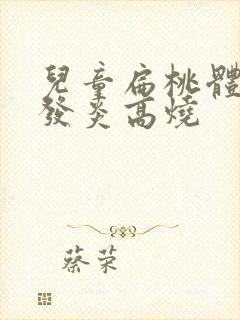 兒童扁桃體
發炎高燒
蔡荣